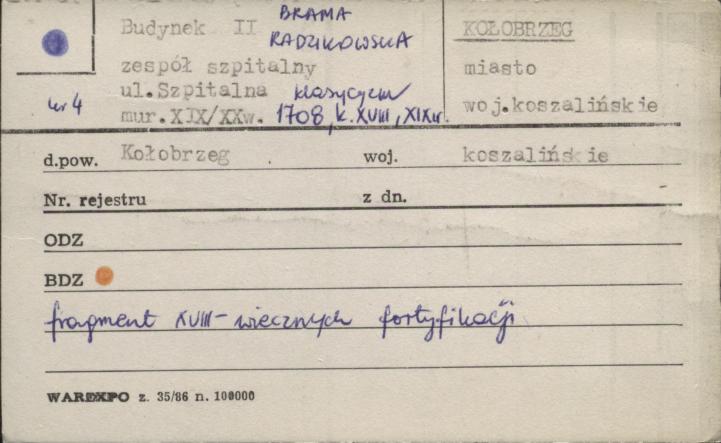 Budynek II BRAMA
RADZIKOWSKA
KOŁOBRZEG
zespół szpitalny
miasto
ul.Szpitalna klasycyzm
nr 4
mur.XIX/XXw. 1708, k.XVIII, XIXw.
woj.koszalińskie
d.pow. Kołobrzeg woj. koszalińskie
Nr. rejestru z dn.
ODZ
BDZ
fragment XVIII-wiecznych fortyfikacji
WAREXPO z. 35/86 n. 100000